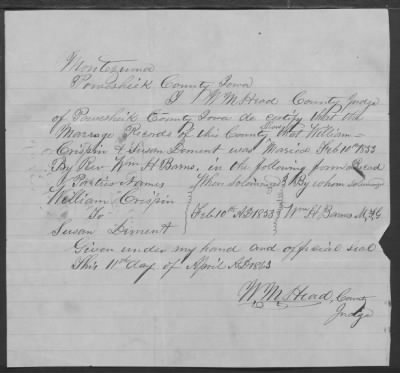 Montezuma
Poweshiek County Iowa
I W M Head County Judge
of Poweshiek County Iowa do certify that the
Marrage Records of this County Shows that William
Crispin & Susan Diment was Maried Feb 10th 1853
By Rev Wm H Barns, in the following form
Parties Names When Solemnized By whom Solemnized
William Crispin
To Feb 10th AD 1853 Wm H. Barns M.G
Susan Diment
Given under my hand and official seal
This 11th day of April AD 1863
W. M. Head, County
Judge